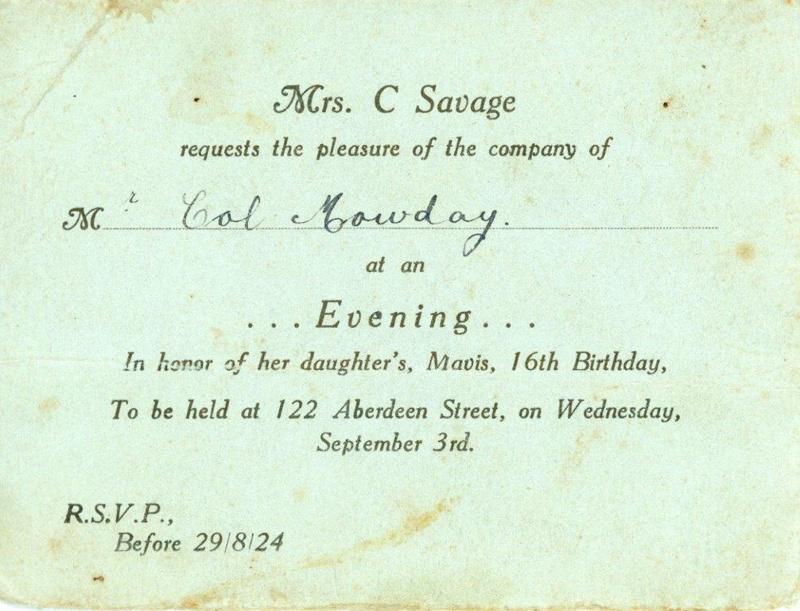 Mrs. C Savage
requests the pleasure of the company of
Mr Col Mowday.
at an
...Evening...
In honor of her daughter's, Mavis, 16th Birthday,
To be held at 122 Aberdeen Street, on Wednesday,
September 3rd.
R.S.V.P.,
Before 29/8/24